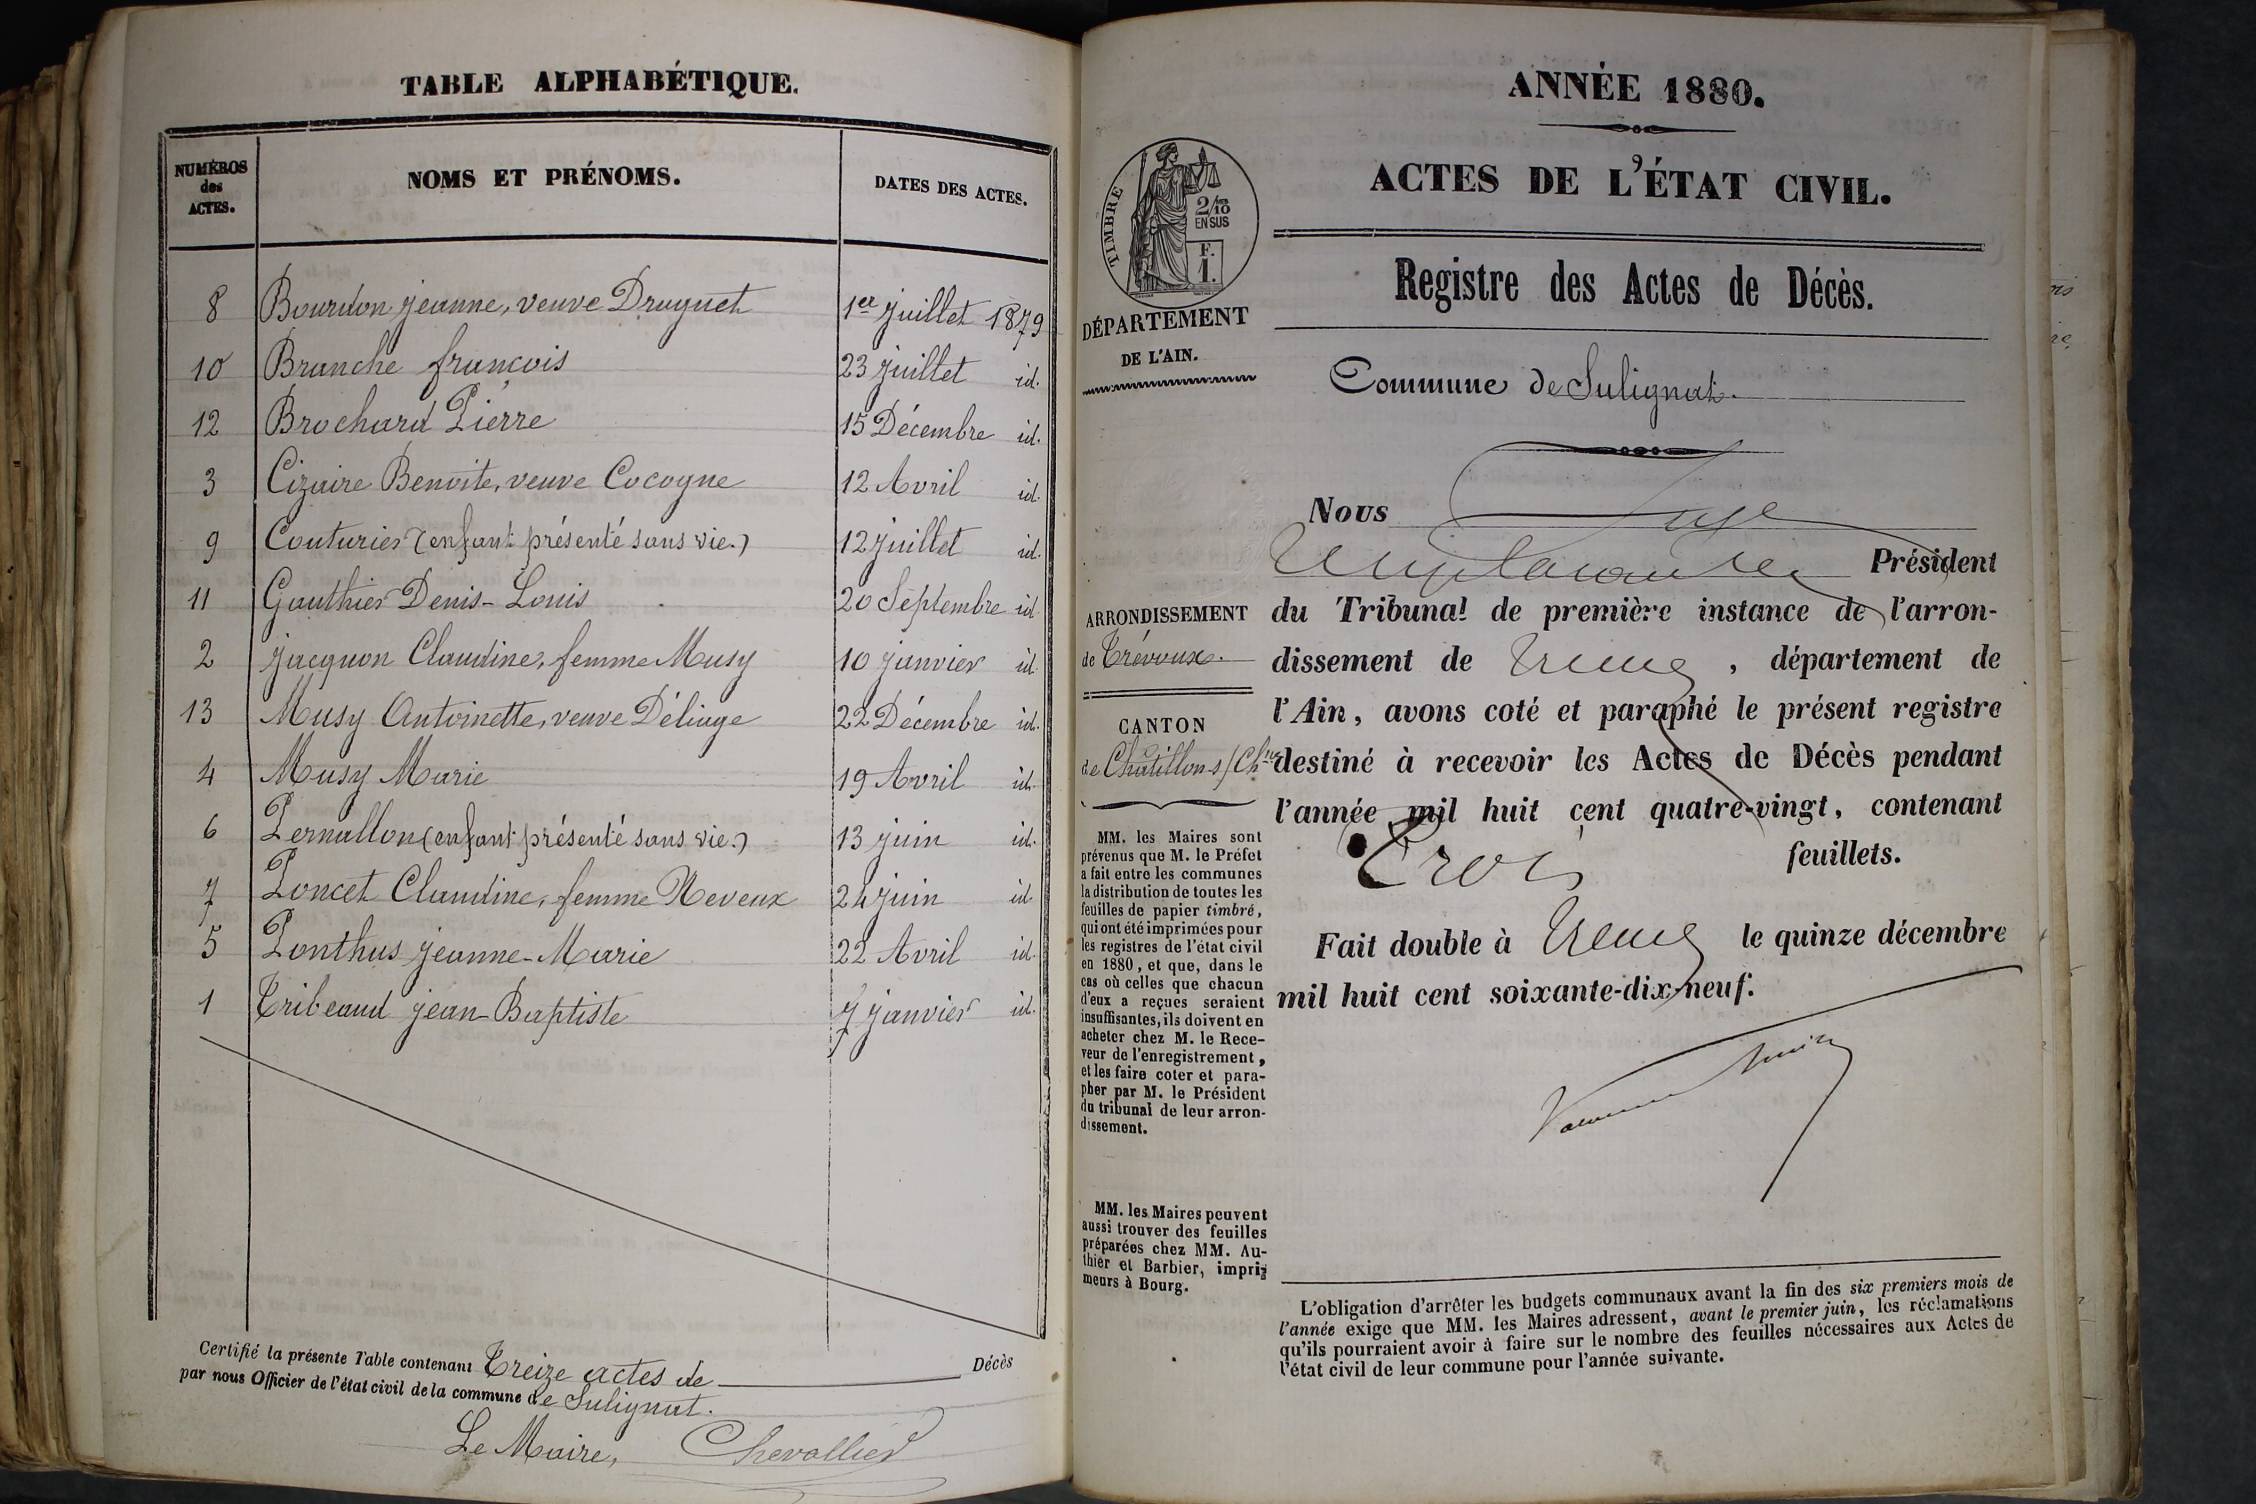 TABLE ALPHABÉTIQUE.
NUMÉROS des ACTES.
NOMS ET PRÉNOMS.
DATES DES ACTES.
8 Bourdon jeanne, veuve Druguet 1er juillet 1879
10 Branche françois 23 juillet id.
12 Brochard Pierre 15 Décembre id.
3 Cizaire Benoite, veuve Cocogne 12 Avril id.
9 Couturier (enfant présenté sans vie.) 12 juillet id.
11 Gauthier Denis-Louis 20 Septembre id
2 jacquon Claudine, femme Musy 10 janvier id.
13 Musy Antoinette, veuve Déliage 22 Décembre id.
4 Musy Marie 19 Avril id.
6 Pernallon (enfant présenté sans vie.) 13 juin id.
7 Poncet Claudine, femme Neveux 24 juin id
5 Ponthus jeanne-Marie 22 Avril id.
1 Tribeaud jean-Baptiste 7 janvier id.
Certifié la présente Table contenant Treize actes de Décès
par nous Officier de l'état civil de la commune de Sulignat.
Le Maire, Chevallier
ANNÉE 1880.
ACTES DE L'ÉTAT CIVIL.
Registre des Actes de Décès.
TIMBRE
2/10 EN SUS
F. 1.
DÉPARTEMENT
DE L'AIN.
Commune de Sulignat.
Nous Juge
Président
du Tribunal de première instance de l'arron-
dissement de , département de
l'Ain, avons coté et paraphé le présent registre
destiné à recevoir les Actes de Décès pendant
l'année mil huit cent quatre-vingt, contenant
Trois feuillets.
Fait double à le quinze décembre
mil huit cent soixante-dix-neuf.
ARRONDISSEMENT
de Trévoux.
CANTON
de Châtillon-s/Chne
MM. les Maires sont
prévenus que M. le Préfet
a fait entre les communes
la distribution de toutes les
feuilles de papier timbré,
qui ont été imprimées pour
les registres de l'état civil
en 1880, et que, dans le
cas où celles que chacun
d'eux a reçues seraient
insuffisantes, ils doivent en
acheter chez M. le Rece-
veur de l'enregistrement,
et les faire coter et para-
pher par M. le Président
du tribunal de leur arron-
dissement.
MM. les Maires peuvent
aussi trouver des feuilles
préparées chez MM. Au-
thier et Barbier, impri-
meurs à Bourg.
L'obligation d'arrêter les budgets communaux avant la fin des six premiers mois de
l'année exige que MM. les Maires adressent, avant le premier juin, les réclamations
qu'ils pourraient avoir à faire sur le nombre des feuilles nécessaires aux Actes de
l'état civil de leur commune pour l'année suivante.